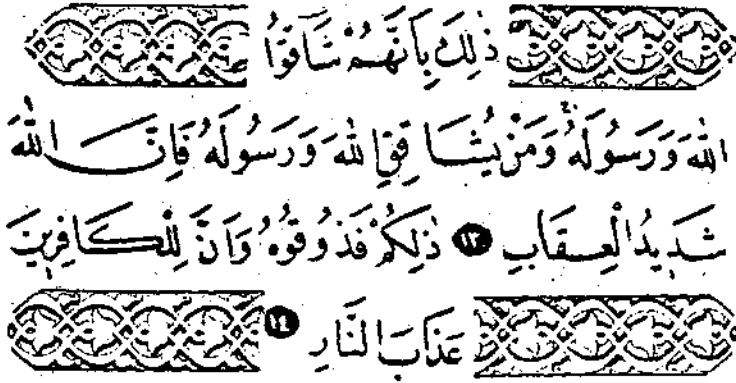 ذٰلِكَ بِاَنَّهُمْ شَٓاقُّوا
اللّٰهَ وَرَسُولَهُۚ وَمَنْ يُشَاقِقِ اللّٰهَ وَرَسُولَهُ فَاِنَّ اللّٰهَ
شَدٖيدُ الْعِقَابِ ﴿١٣﴾ ذٰلِكُمْ فَذُوقُوهُ وَاَنَّ لِلْكَافِرٖينَ
عَذَابَ النَّارِ ﴿١٤﴾